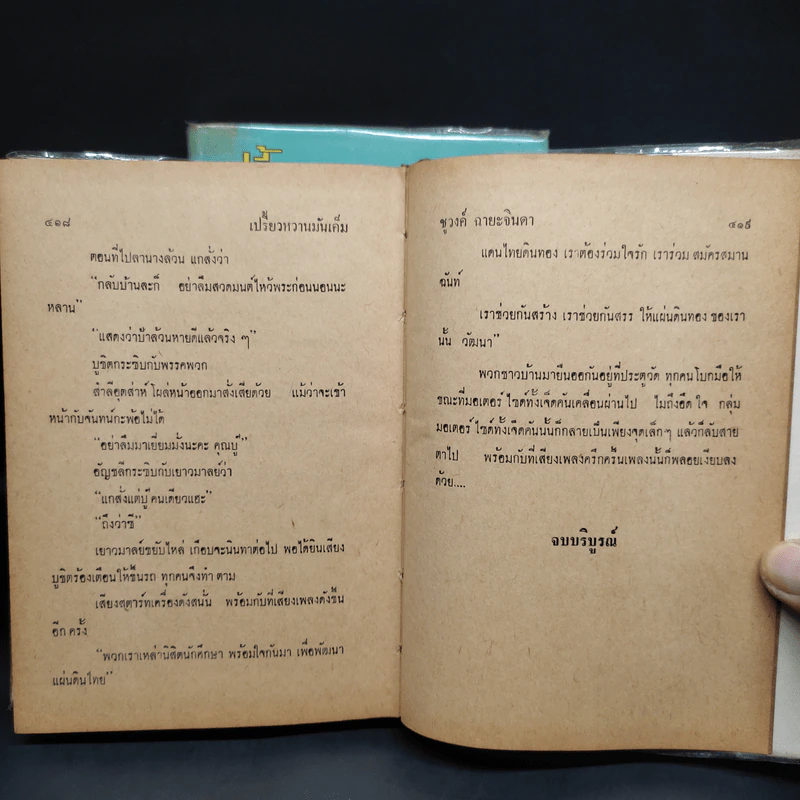 ๔๑๘
เปรี้ยวหวานมันเค็ม
ตอนที่ไปลานางล้วน แกสั่งว่า
“กลับบ้านละก็ อย่าลืมสวดมนต์ไหว้พระก่อนนอนนะ
หลาน”
“แสดงว่าป้าล้วนหายดีแล้วจริง ๆ”
บูชิตกระซิบกับพรรคพวก
สำลีอุตส่าห์ โผล่หน้าออกมาสั่งเสียด้วย แม้ว่าจะเข้า
หน้ากับจันทน์กะพ้อไม่ได้
“อย่าลืมมาเยี่ยมมั่งนะคะ คุณบู๊”
อัญชลีกระซิบกับเยาวมาลย์ว่า
“แกสั่งแต่บู๊ คนเดียวแฮะ”
“ถึงว่าซี”
เยาวมาลย์ขยับไหล่ เกือบจะนินทาต่อไป พอได้ยินเสียง
บูชิตร้องเตือนให้ขึ้นรถ ทุกคนจึงทำ ตาม
เสียงสตาร์ทเครื่องดังสนั่น พร้อมกับที่เสียงเพลงดังขึ้น
อีก ครั้ง
“พวกเราเหล่านิสิตนักศึกษา พร้อมใจกันมา เพื่อพัฒนา
แผ่นดินไทย”
ชูวงศ์ ฉายะจินดา
๔๑๙
แดนไทยดินทอง เราต้องร่วมใจรัก เราร่วม สมัครสมาน
ฉันท์
เราช่วยกันสร้าง เราช่วยกันสรร ให้แผ่นดินทอง ของเรา
นั้น วัฒนา”
พวกชาวบ้านมายืนออกันอยู่ที่ประตูวัด ทุกคนโบกมือให้
ขณะที่มอเตอร์ ไซด์ทั้งเจ็ดคันเคลื่อนผ่านไป ไม่ถึงอึด ใจ กลุ่ม
มอเตอร์ ไซด์ทั้งเจ็ดคันนั้นก็กลายเป็นเพียงจุดเล็ก ๆ แล้วก็ลับสาย
ตาไป พร้อมกับที่เสียงเพลงครึกครื้นเพลงนั้นก็พลอยเงียบลง
ด้วย....
จบบริบูรณ์